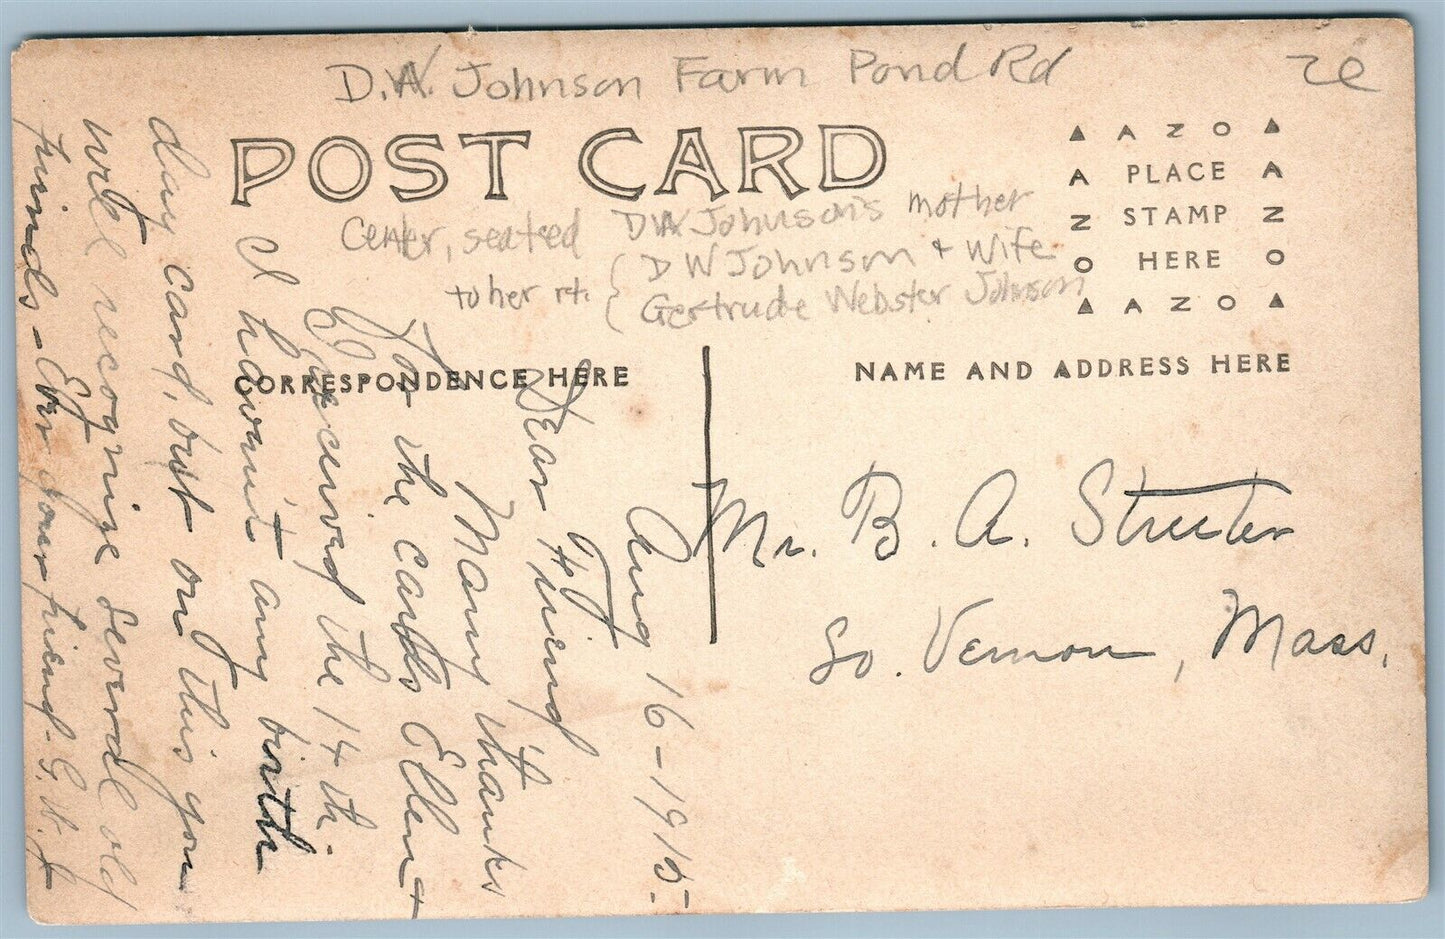 D.W. Johnson Farm Pond Rd
POST CARD
Center, seated DW Johnson's mother
to her rt. { DW Johnson + Wife
Gertrude Webster Johnson
AZO
PLACE
STAMP
HERE
AZO
CORRESPONDENCE HERE
NAME AND ADDRESS HERE
Mr. B. A. Streeter
So. Vernon, Mass.
Aug 16-1915-
Dear Friend
Many thanks
for the cards Ellen +
I received the 14th.
I haven't any birth
day card, but on this you
will recognize several old
friends - Ever your friend - G. W. J